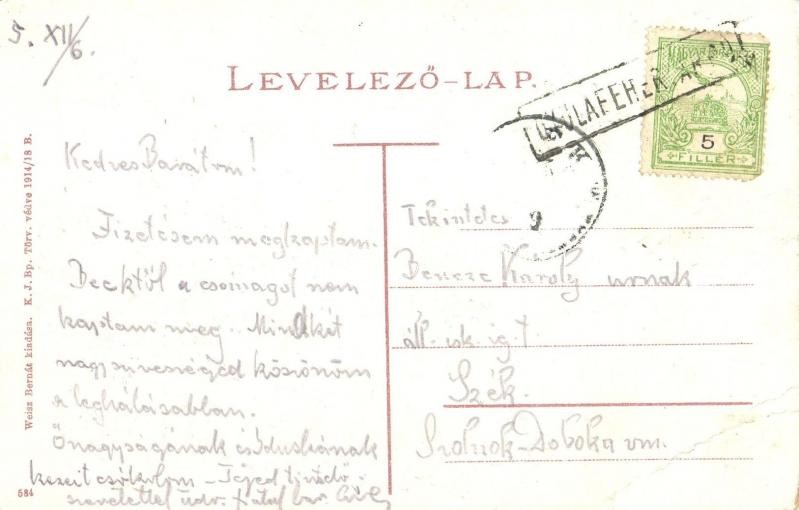 5. XII/6.
LEVELEZŐ-LAP.
GYULAFEHÉR
MAGYAR
5
FILLÉR
Kedves Barátom!
Fizetésem megkaptam.
Becktől a csomagot nem
kaptam meg. Mindkét
nagy szivességed köszönöm
a leghálásabban.
Őnagyságának és Iduskának
kezeit csókolom – Téged tisztelő
szeretettel üdv.
Tekintetes
Bencze Károly urnak
áll. isk. ig. t
Szék.
Szolnok-Doboka vm.
Weisz Bernát kiadása. K. J. Bp. Törv. védve 1914/18 B.
584